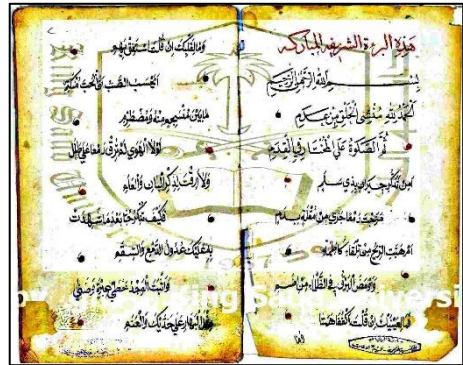 هذه البردة الشريفة المباركه
بسم الله الرحمن الرحيم
الحمد لله منشي الخلق من عدم
ثم الصلوة على المختار في القدم
امن تذكر جيران بذي سلم
مزجت دمعا جرى من مقلة بدم
ام هبت الريح من تلقاء كاظمة
واومض البرق في الظلماء من اضم
فما لعينيك ان قلت اكففا همتا
وما لقلبك ان قلت استفق يهم
ايحسب الصب ان الحب منكتم
ما بين منسجم منه ومضطرم
لولا الهوى لم ترق دمعا على طلل
ولا ارقت لذكر البان والعلم
فكيف تنكر حبا بعد ما شهدت
به عليك عدول الدمع والسقم
واثبت الوجد خطي عبرة وضنى
مثل البهار على خديك والعنم
King Saud Universi